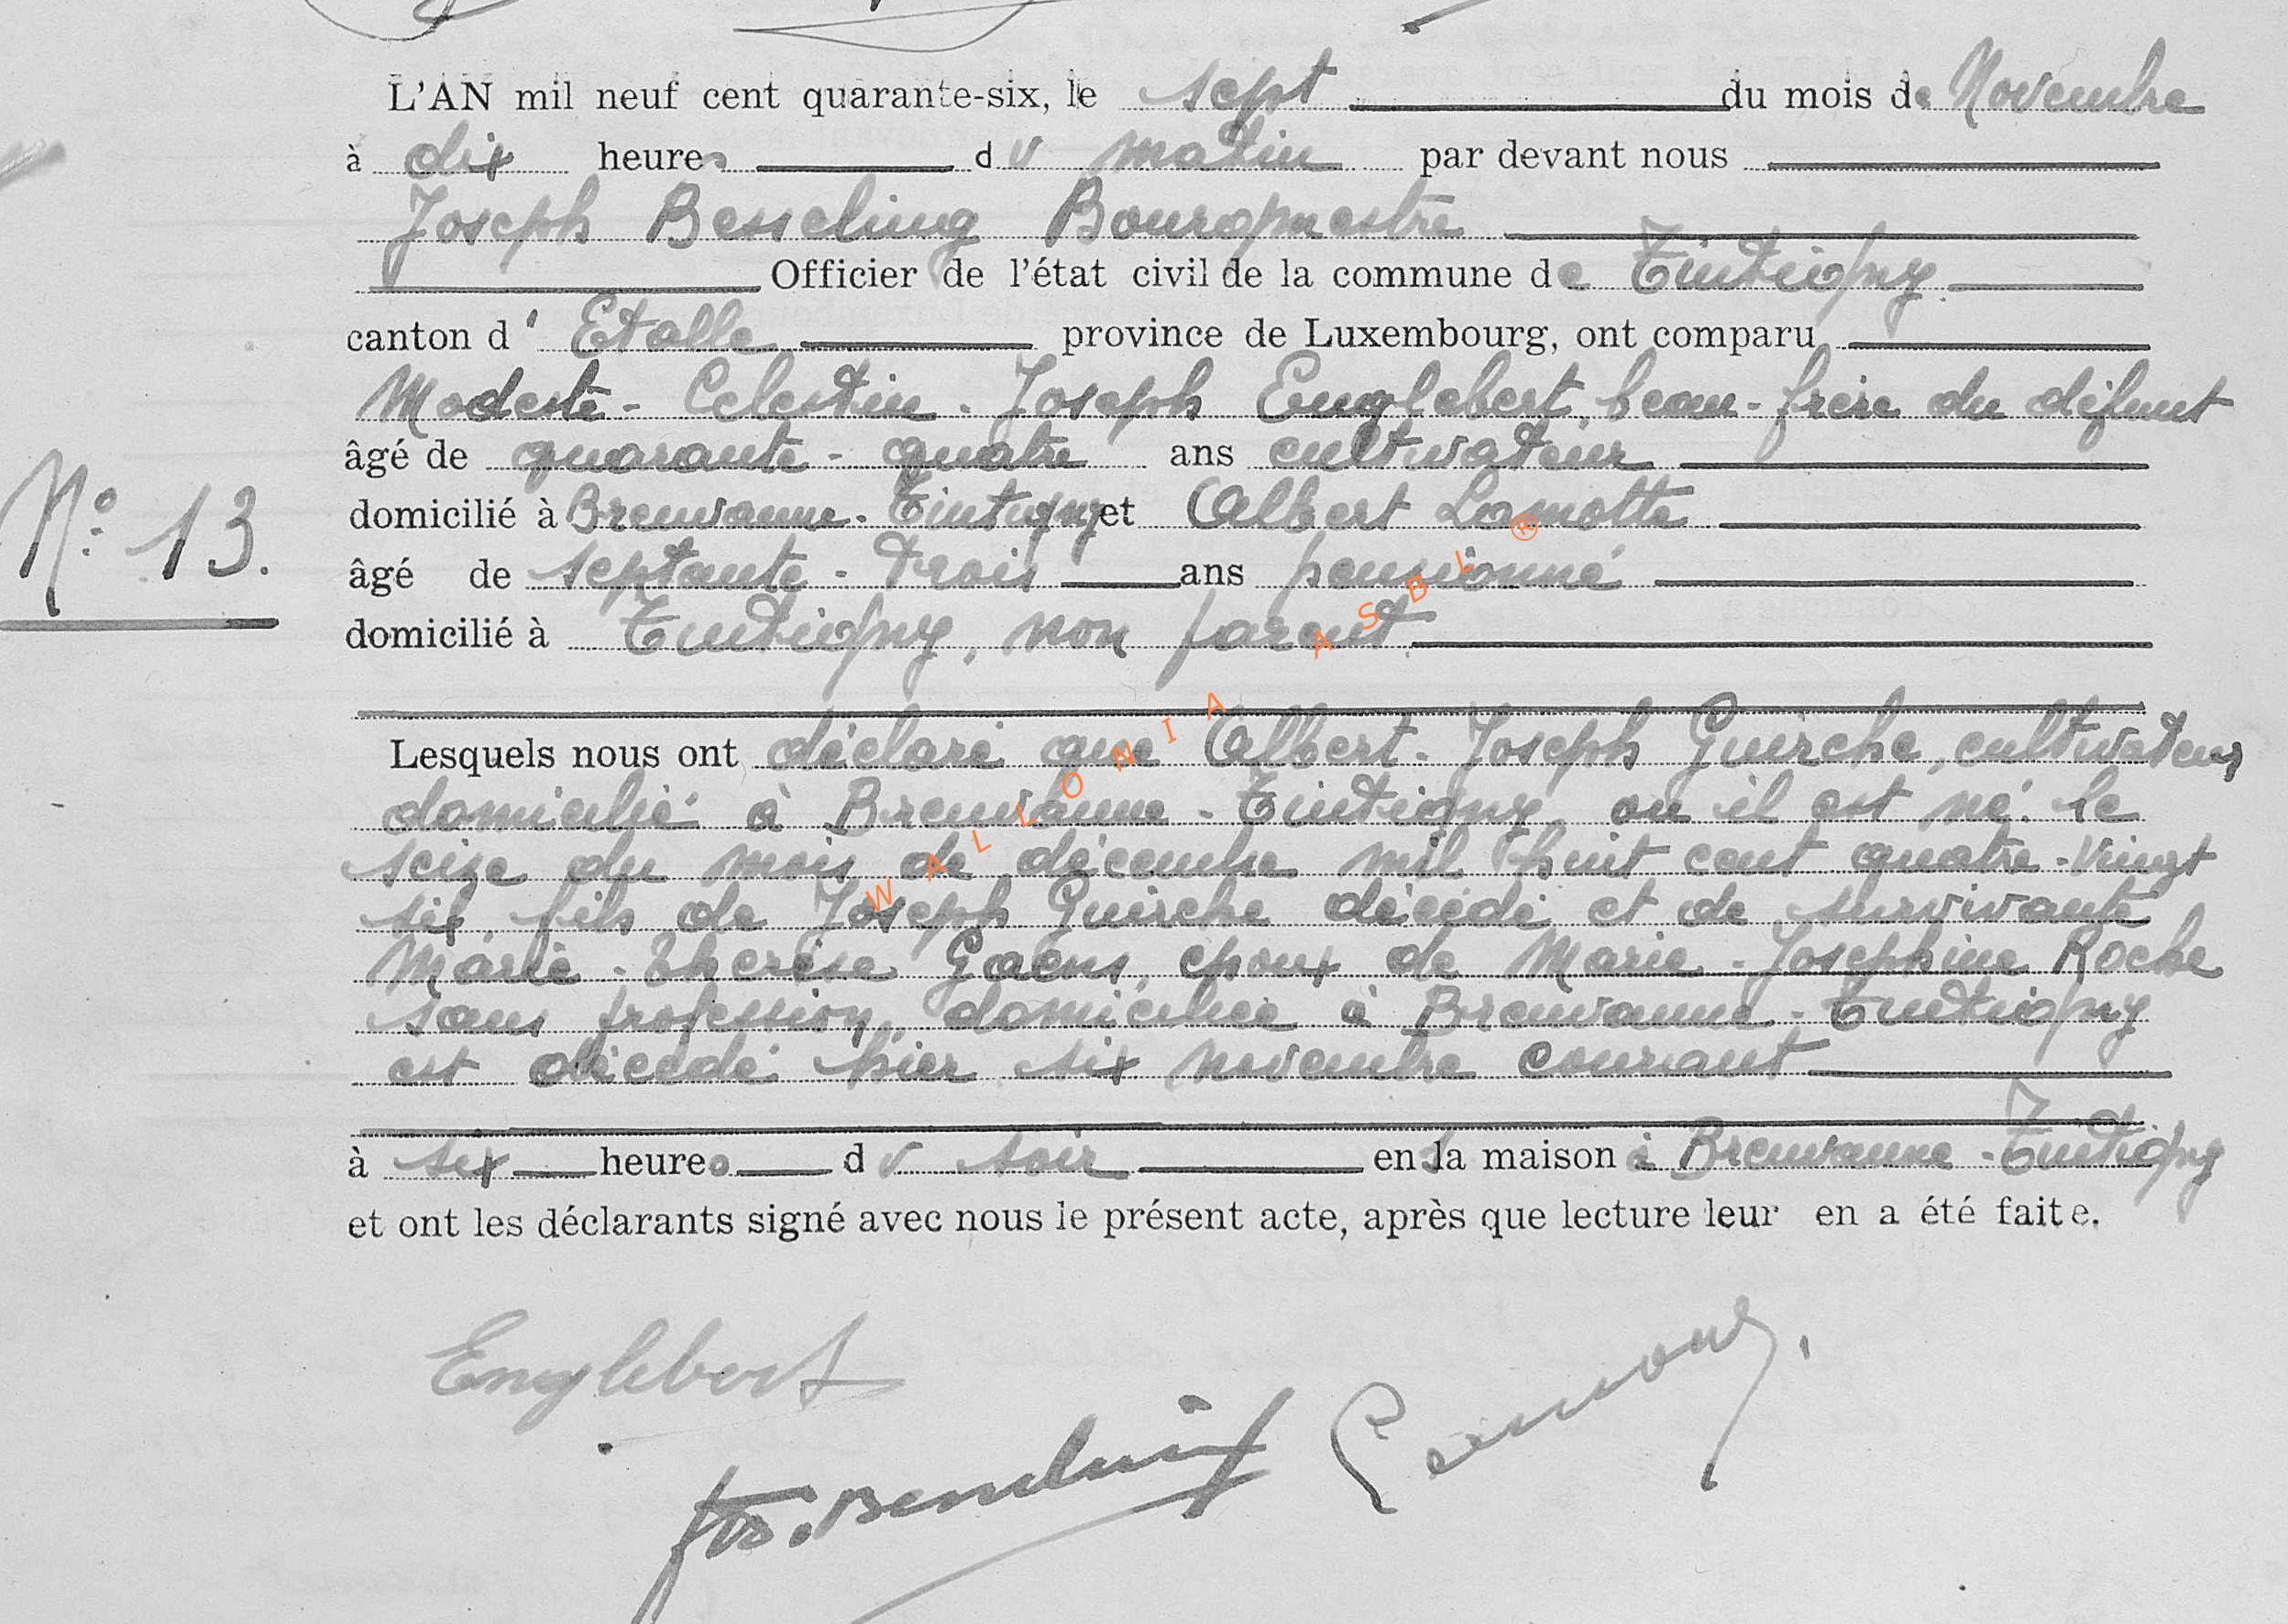 L'AN mil neuf cent quarante-six, le sept du mois de Novembre
à dix heures du matin par devant nous
Joseph Besseling Bourgmestre
Officier de l'état civil de la commune de Tintigny
canton d'Etalle province de Luxembourg, ont comparu
Modeste-Celestin-Joseph Englebert, beau-frère du défunt
âgé de quarante-quatre ans cultivateur
N° 13.
domicilié à Breuvanne-Tintigny et Albert Lamotte
âgé de septante-trois ans pensionné
domicilié à Tintigny, non parent.
Lesquels nous ont déclaré que Albert-Joseph Guirche, cultivateur
domicilié à Breuvanne-Tintigny où il est né le
seize du mois de décembre mil huit cent quatre-vingt
six, fils de Joseph Guirche décédé et de survivante
Marie-Thérèse Goëns, époux de Marie-Joséphine Roche
sans profession, domiciliée à Breuvanne-Tintigny
est décédé hier six novembre courant
à six heures du soir en la maison à Breuvanne-Tintigny
et ont les déclarants signé avec nous le présent acte, après que lecture leur en a été faite.
Englebert
WALLONIA ASBL ®